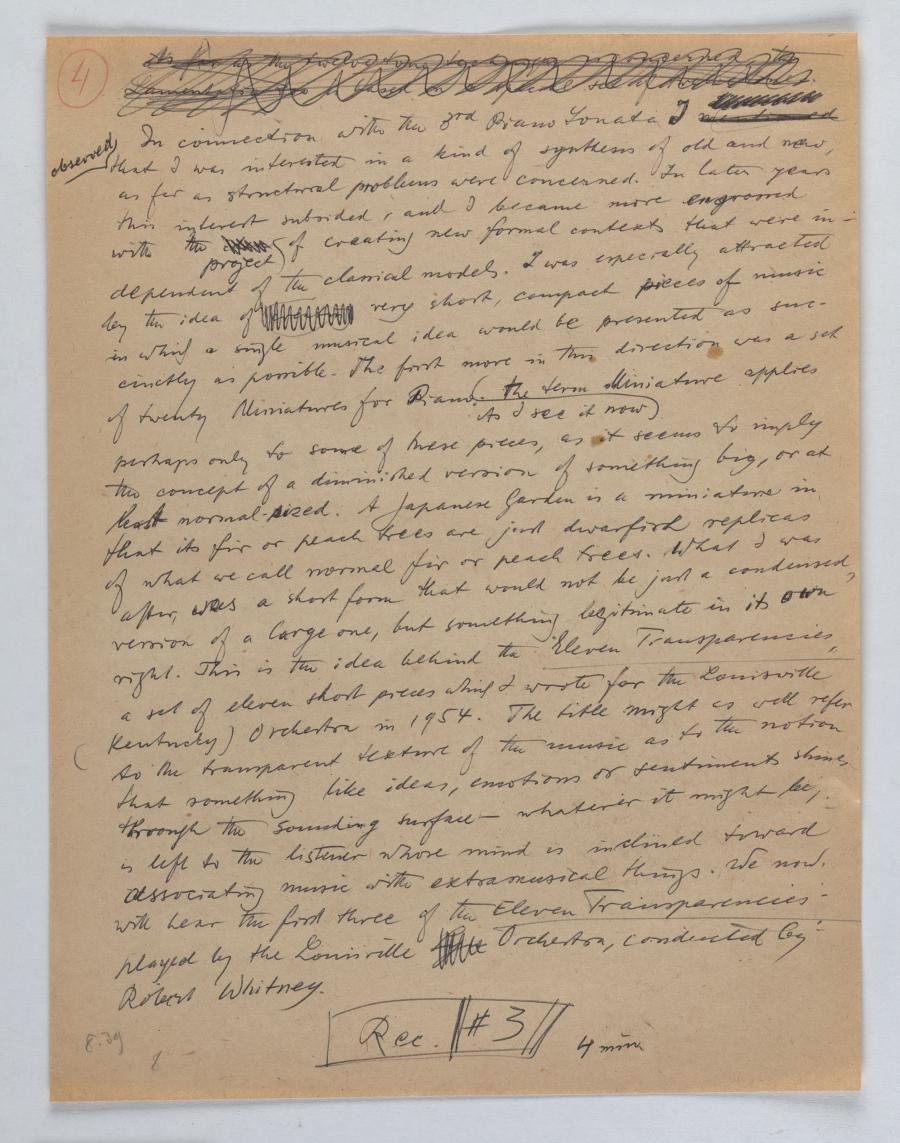 4
As far as the twelve-tone technique is concerned, the
Lamentatio is based on a
In connection with the 3rd Piano Sonata I mentioned
observed
that I was interested in a kind of synthesis of old and new,
as far as structural problems were concerned. In later years
this interest subsided, and I became more engrossed
with the project of creating new formal contexts that were in-
dependent of the classical models. I was especially attracted
by the idea of very short, compact pieces of music
in which a single musical idea would be presented as suc-
cinctly as possible. The first move in this direction was a set
of twenty Miniatures for Piano. The term Miniature applies
As I see it now
perhaps only to some of these pieces, as it seems to imply
the concept of a diminished version of something big, or at
least normal-sized. A Japanese Garden is a miniature in
that its fir or peach trees are just dwarfish replicas
of what we call normal fir or peach trees. What I was
after, was a short form that would not be just a condensed
version of a large one, but something legitimate in its own
right. This is the idea behind the Eleven Transparencies,
a set of eleven short pieces which I wrote for the Louisville
(Kentucky) Orchestra in 1954. The title might as well refer
to the transparent texture of the music as to the notion
that something like ideas, emotions or sentiments shines
through the sounding surface – whatever it might be,
is left to the listener whose mind is inclined toward
associating music with extramusical things. We now
will hear the first three of the Eleven Transparencies
played by the Louisville Orchestra, conducted by
Robert Whitney.
Rec. #3
4 min
8.39
8